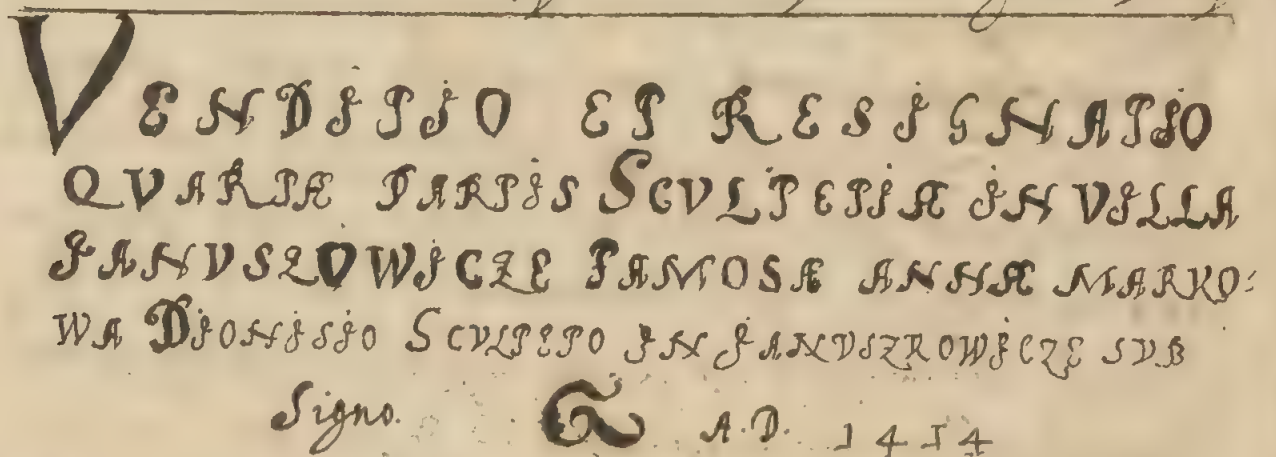 VENDITIO ET RESIGNATIO
QVARTÆ PARTIS SCVLTETIÆ IN VILLA
IANVSZOWICZE FAMOSÆ ANNÆ MARKO:
WA DIONISIO SCVLTETO IN IANVSZROWICZE SVB
Signo. A.D. 1414